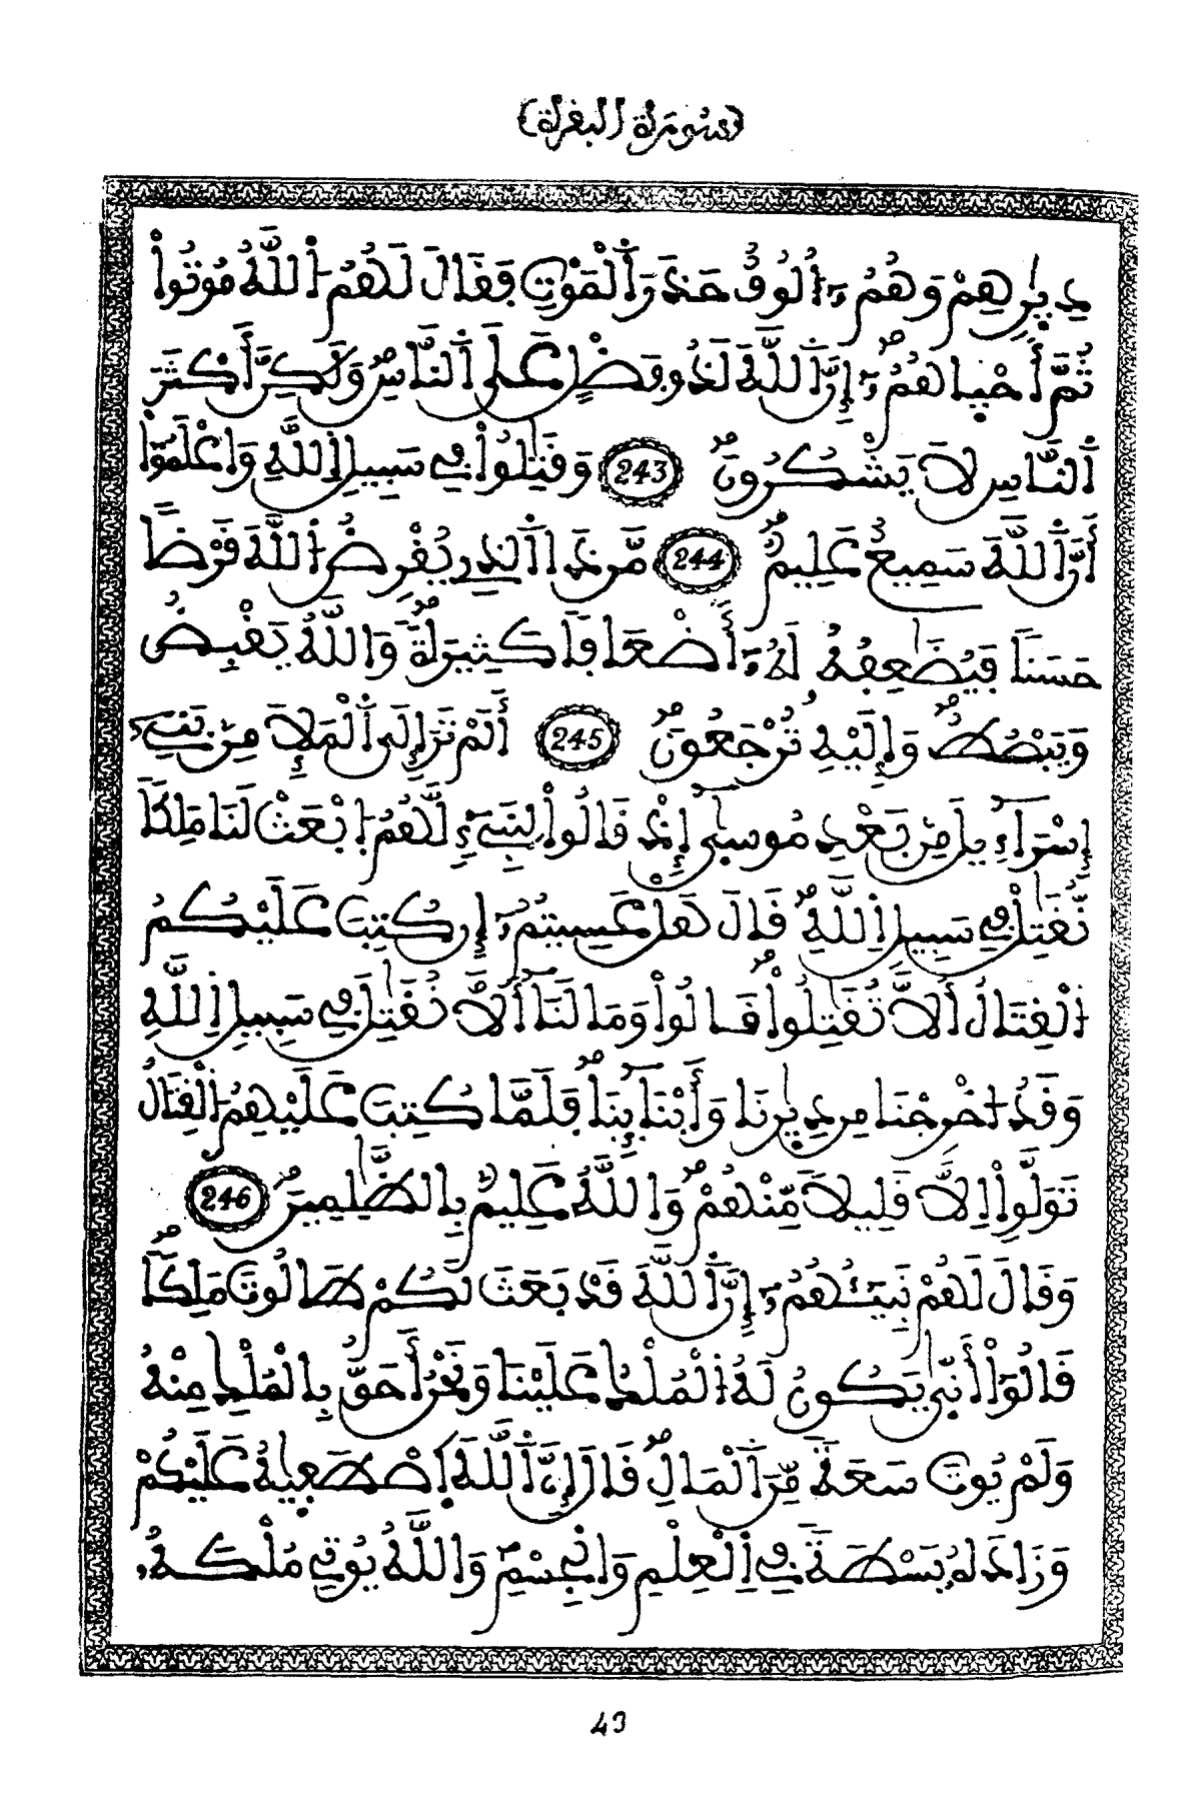 (سورة البقرة)
دِيٰرِهِمْ وَهُمُۥٓ أُلُوفٌ حَذَرَ ٱلْمَوْتِ فَقَالَ لَهُمُ ٱللَّهُ مُوتُواْ
ثُمَّ أَحْيٰاهُمُۥٓ إِنَّ ٱللَّهَ لَذُو فَضْلٍ عَلَى ٱلنَّاسِ وَلَٰكِنَّ أَكْثَرَ
ٱلنَّاسِ لَا يَشْكُرُونَ 243 وَقَٰتِلُواْ فِي سَبِيلِ ٱللَّهِ وَاعْلَمُوٓاْ
أَنَّ ٱللَّهَ سَمِيعٌ عَلِيمٌ 244 مَّن ذَا ٱلَّذِي يُقْرِضُ ٱللَّهَ قَرْضًا
حَسَنًا فَيُضَٰعِفُهُ لَهُۥٓ أَضْعَافًا كَثِيرَةً وَاللَّهُ يَقْبِضُ
وَيَبْصُطُ وَإِلَيْهِ تُرْجَعُونَ 245 أَلَمْ تَرَ إِلَى ٱلْمَلَإِ مِنۢ بَنِيٓ
إِسْرَآءِيلَ مِنۢ بَعْدِ مُوسىٰٓ إِذْ قَالُواْ لِنَبِيٓءٍ لَّهُمُ ابْعَثْ لَنَا مَلِكًا
نُّقَٰتِلْ فِي سَبِيلِ ٱللَّهِ قَالَ هَلْ عَسِيتُمُۥٓ إِن كُتِبَ عَلَيْكُمُ
ٱلْقِتَالُ أَلَّا تُقَٰتِلُواْ قَالُواْ وَمَا لَنَآ أَلَّا نُقَٰتِلَ فِي سَبِيلِ ٱللَّهِ
وَقَدُ اخْرِجْنَا مِن دِيٰرِنَا وَأَبْنَآئِنَا فَلَمَّا كُتِبَ عَلَيْهِمُ ٱلْقِتَالُ
تَوَلَّوِاْ اِلَّا قَلِيلًا مِّنْهُمْ وَاللَّهُ عَلِيمٌۢ بِالظَّٰلِمِينَ 246
وَقَالَ لَهُمْ نَبِيٓـُٔهُمُۥٓ إِنَّ ٱللَّهَ قَدْ بَعَثَ لَكُمْ طَالُوتَ مَلِكًا
قَالُوٓاْ أَنّٰى يَكُونُ لَهُ ٱلْمُلْكُ عَلَيْنَا وَنَحْنُ أَحَقُّ بِالْمُلْكِ مِنْهُ
وَلَمْ يُوتَ سَعَةً مِّنَ ٱلْمَالِ قَالَ إِنَّ ٱللَّهَ ٱصْطَفِيٰهُ عَلَيْكُمْ
وَزَادَهُۥ بَسْطَةً فِي ٱلْعِلْمِ وَالْجِسْمِ وَاللَّهُ يُوتِي مُلْكَهُۥ
43